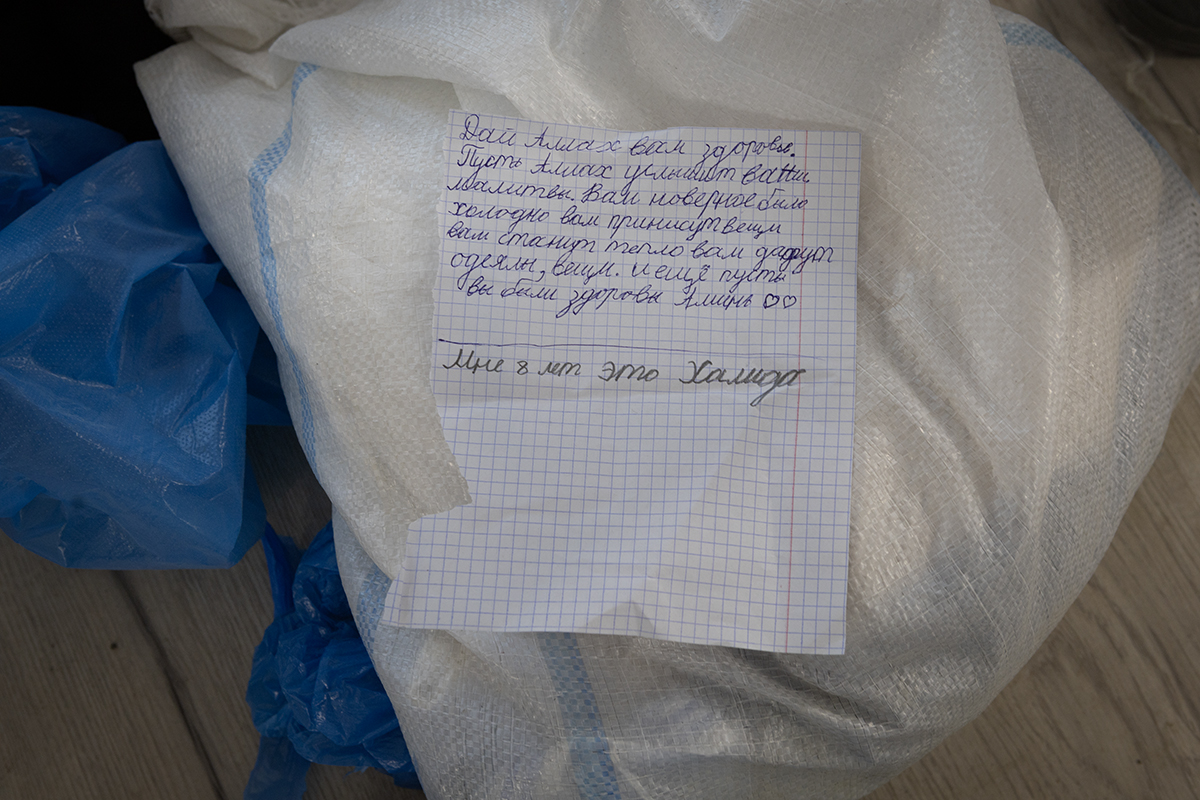 Дай Аллах вам здоровы.
Пусть Аллах услышит ваши
малитвы. Вам наверное было
холодно вам принисут вещи
вам станит тепло вам дадут
одеялы, вещи. и ещё пусть
вы были здоровы Алинь ♡♡
Мне 8 лет это Халида